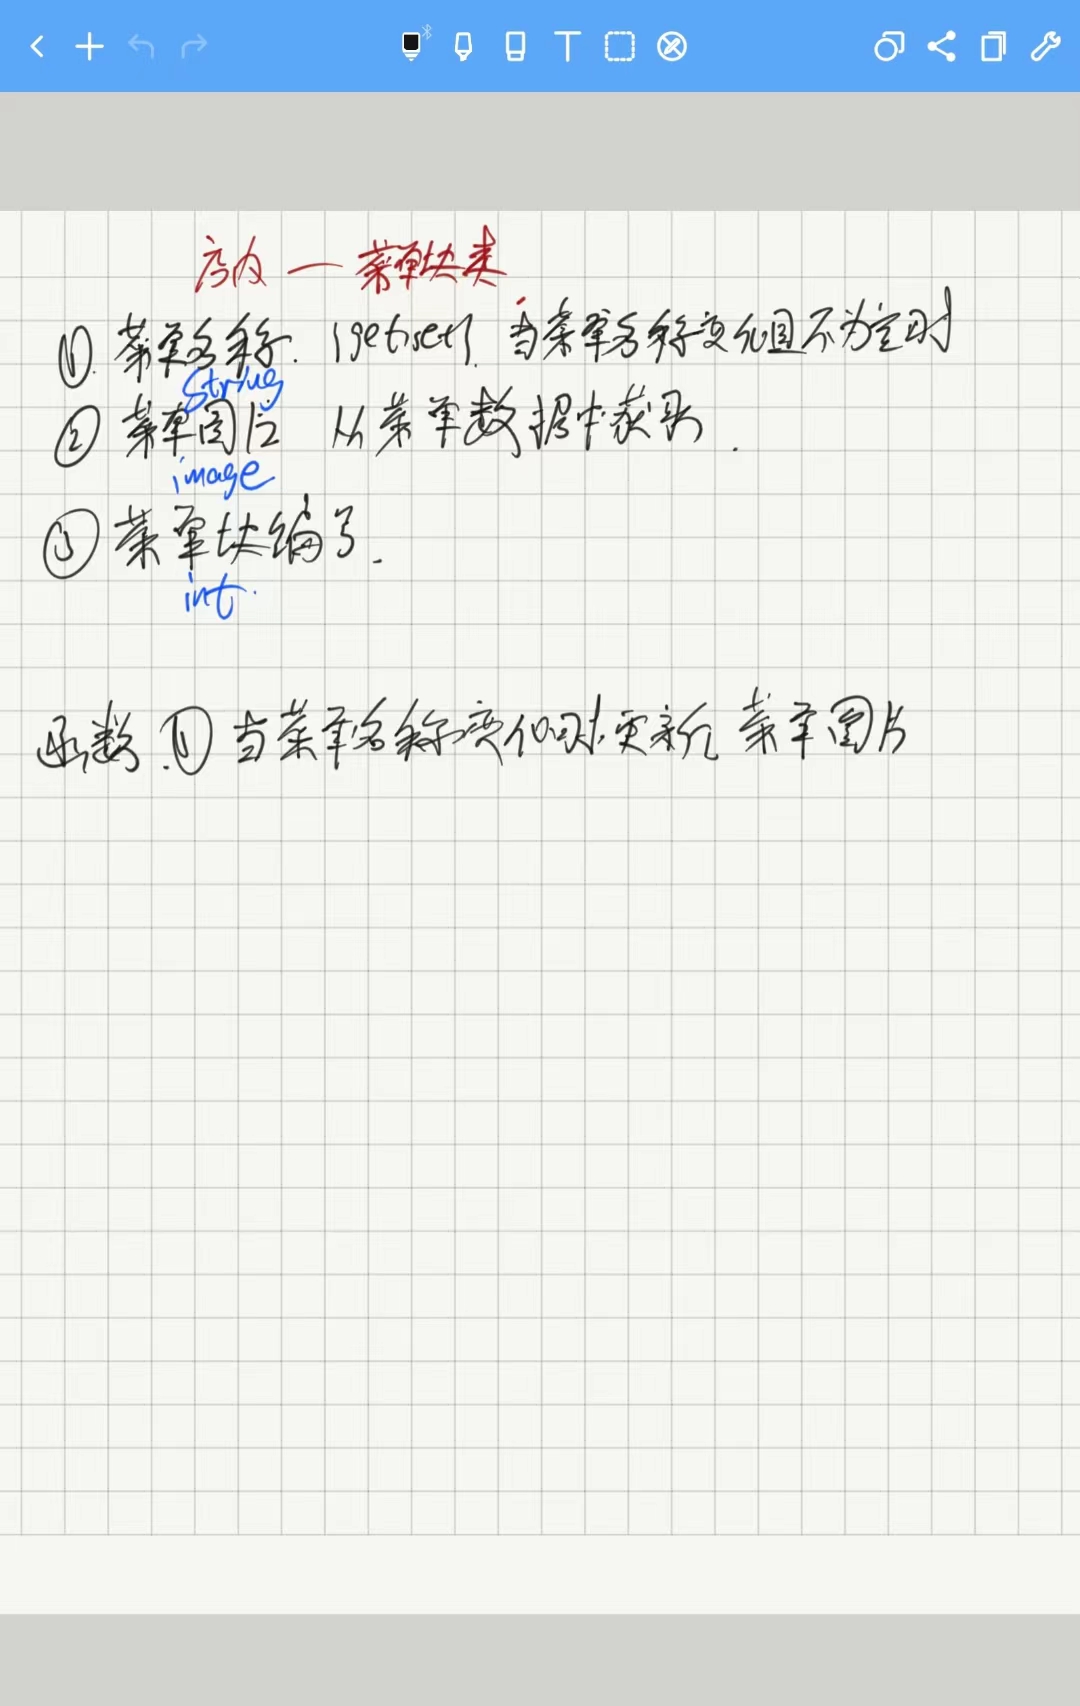 店内 — 菜单块类
① 菜单名称. (get;set). 当菜单名称变化且不为空时
String
② 菜单图片 从菜单数据中获取.
image
③ 菜单块编号.
int.
函数.① 当菜单名称变化时.更新 菜单图片